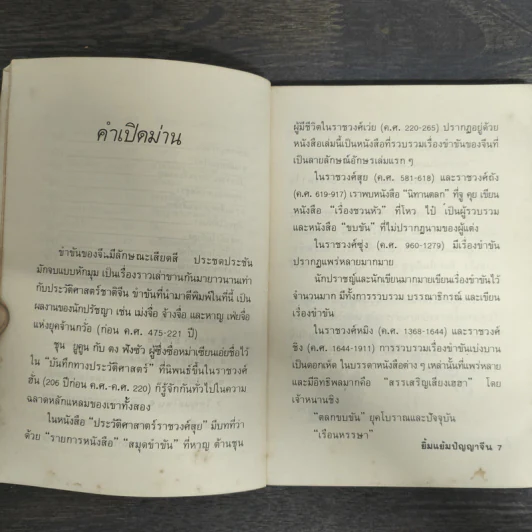 คำเปิดม่าน
ขำขันของจีนมีลักษณะเสียดสี ประชดประชัน
มักจบแบบหักมุม เป็นเรื่องราวเล่าขานกันมายาวนานเท่า
กับประวัติศาสตร์ชาติจีน ขำขันที่นำมาตีพิมพ์ในที่นี้ เป็น
ผลงานของนักปรัชญา เช่น เม่งจื๊อ จ้างจื่อ และหาญ เฟ่ยจื่อ
แห่งยุคจ้านกว๋อ (ก่อน ค.ศ. 475-221 ปี)
ชุน ยูคุน กับ ตง ฟังซัว ผู้ซึ่งชื่อหม่าเซียนเอ่ยชื่อไว้
ใน "บันทึกทางประวัติศาสตร์" ที่นิพนธ์ขึ้นในราชวงศ์
ฮั่น (206 ปีก่อน ค.ศ.-ค.ศ. 220) ก็รู้จักกันทั่วไปในความ
ฉลาดหลักแหลมของเขาทั้งสอง
ในหนังสือ "ประวัติศาสตร์ราชวงศ์สุย" มีบทที่ว่า
ด้วย "รายการหนังสือ" "สมุดขำขัน" ที่หาญ ด้านชุน
ผู้มีชีวิตในราชวงศ์เว่ย (ค.ศ. 220-265) ปรากฏอยู่ด้วย
หนังสือเล่มนี้เป็นหนังสือที่รวบรวมเรื่องขำขันของจีนที่
เป็นลายลักษณ์อักษรเล่มแรก ๆ
ในราชวงศ์สุย (ค.ศ. 581-618) และราชวงศ์ถัง
(ค.ศ. 619-917) เราพบหนังสือ "นิทานตลก" ที่จู คุย เขียน
หนังสือ "เรื่องชวนหัว" ที่โหว ไป๋ เป็นผู้รวบรวม
และหนังสือ "ขบขัน" ที่ไม่ปรากฏนามของผู้แต่ง
ในราชวงศ์ซุ่ง (ค.ศ. 960-1279) มีเรื่องขำขัน
ปรากฏแพร่หลายมากมาย
นักปราชญ์และนักเขียนมากมายเขียนเรื่องขำขันไว้
จำนวนมาก มีทั้งการรวบรวม บรรณาธิกรณ์ และเขียน
เรื่องขำขัน
ในราชวงศ์หมิง (ค.ศ. 1368-1644) และราชวงศ์
ชิง (ค.ศ. 1644-1911) การรวบรวมเรื่องขำขันเบ่งบาน
เป็นดอกเห็ด ในบรรดาหนังสือต่าง ๆ เหล่านั้นที่แพร่หลาย
และมีอิทธิพลมากคือ "สรรเสริญเสียงเฮฮา" โดย
เจ้าหนานซิง
"ตลกขบขัน" ยุคโบราณและปัจจุบัน
"เรือนหรรษา"
ยิ้มแย้มปัญญาจีน 7